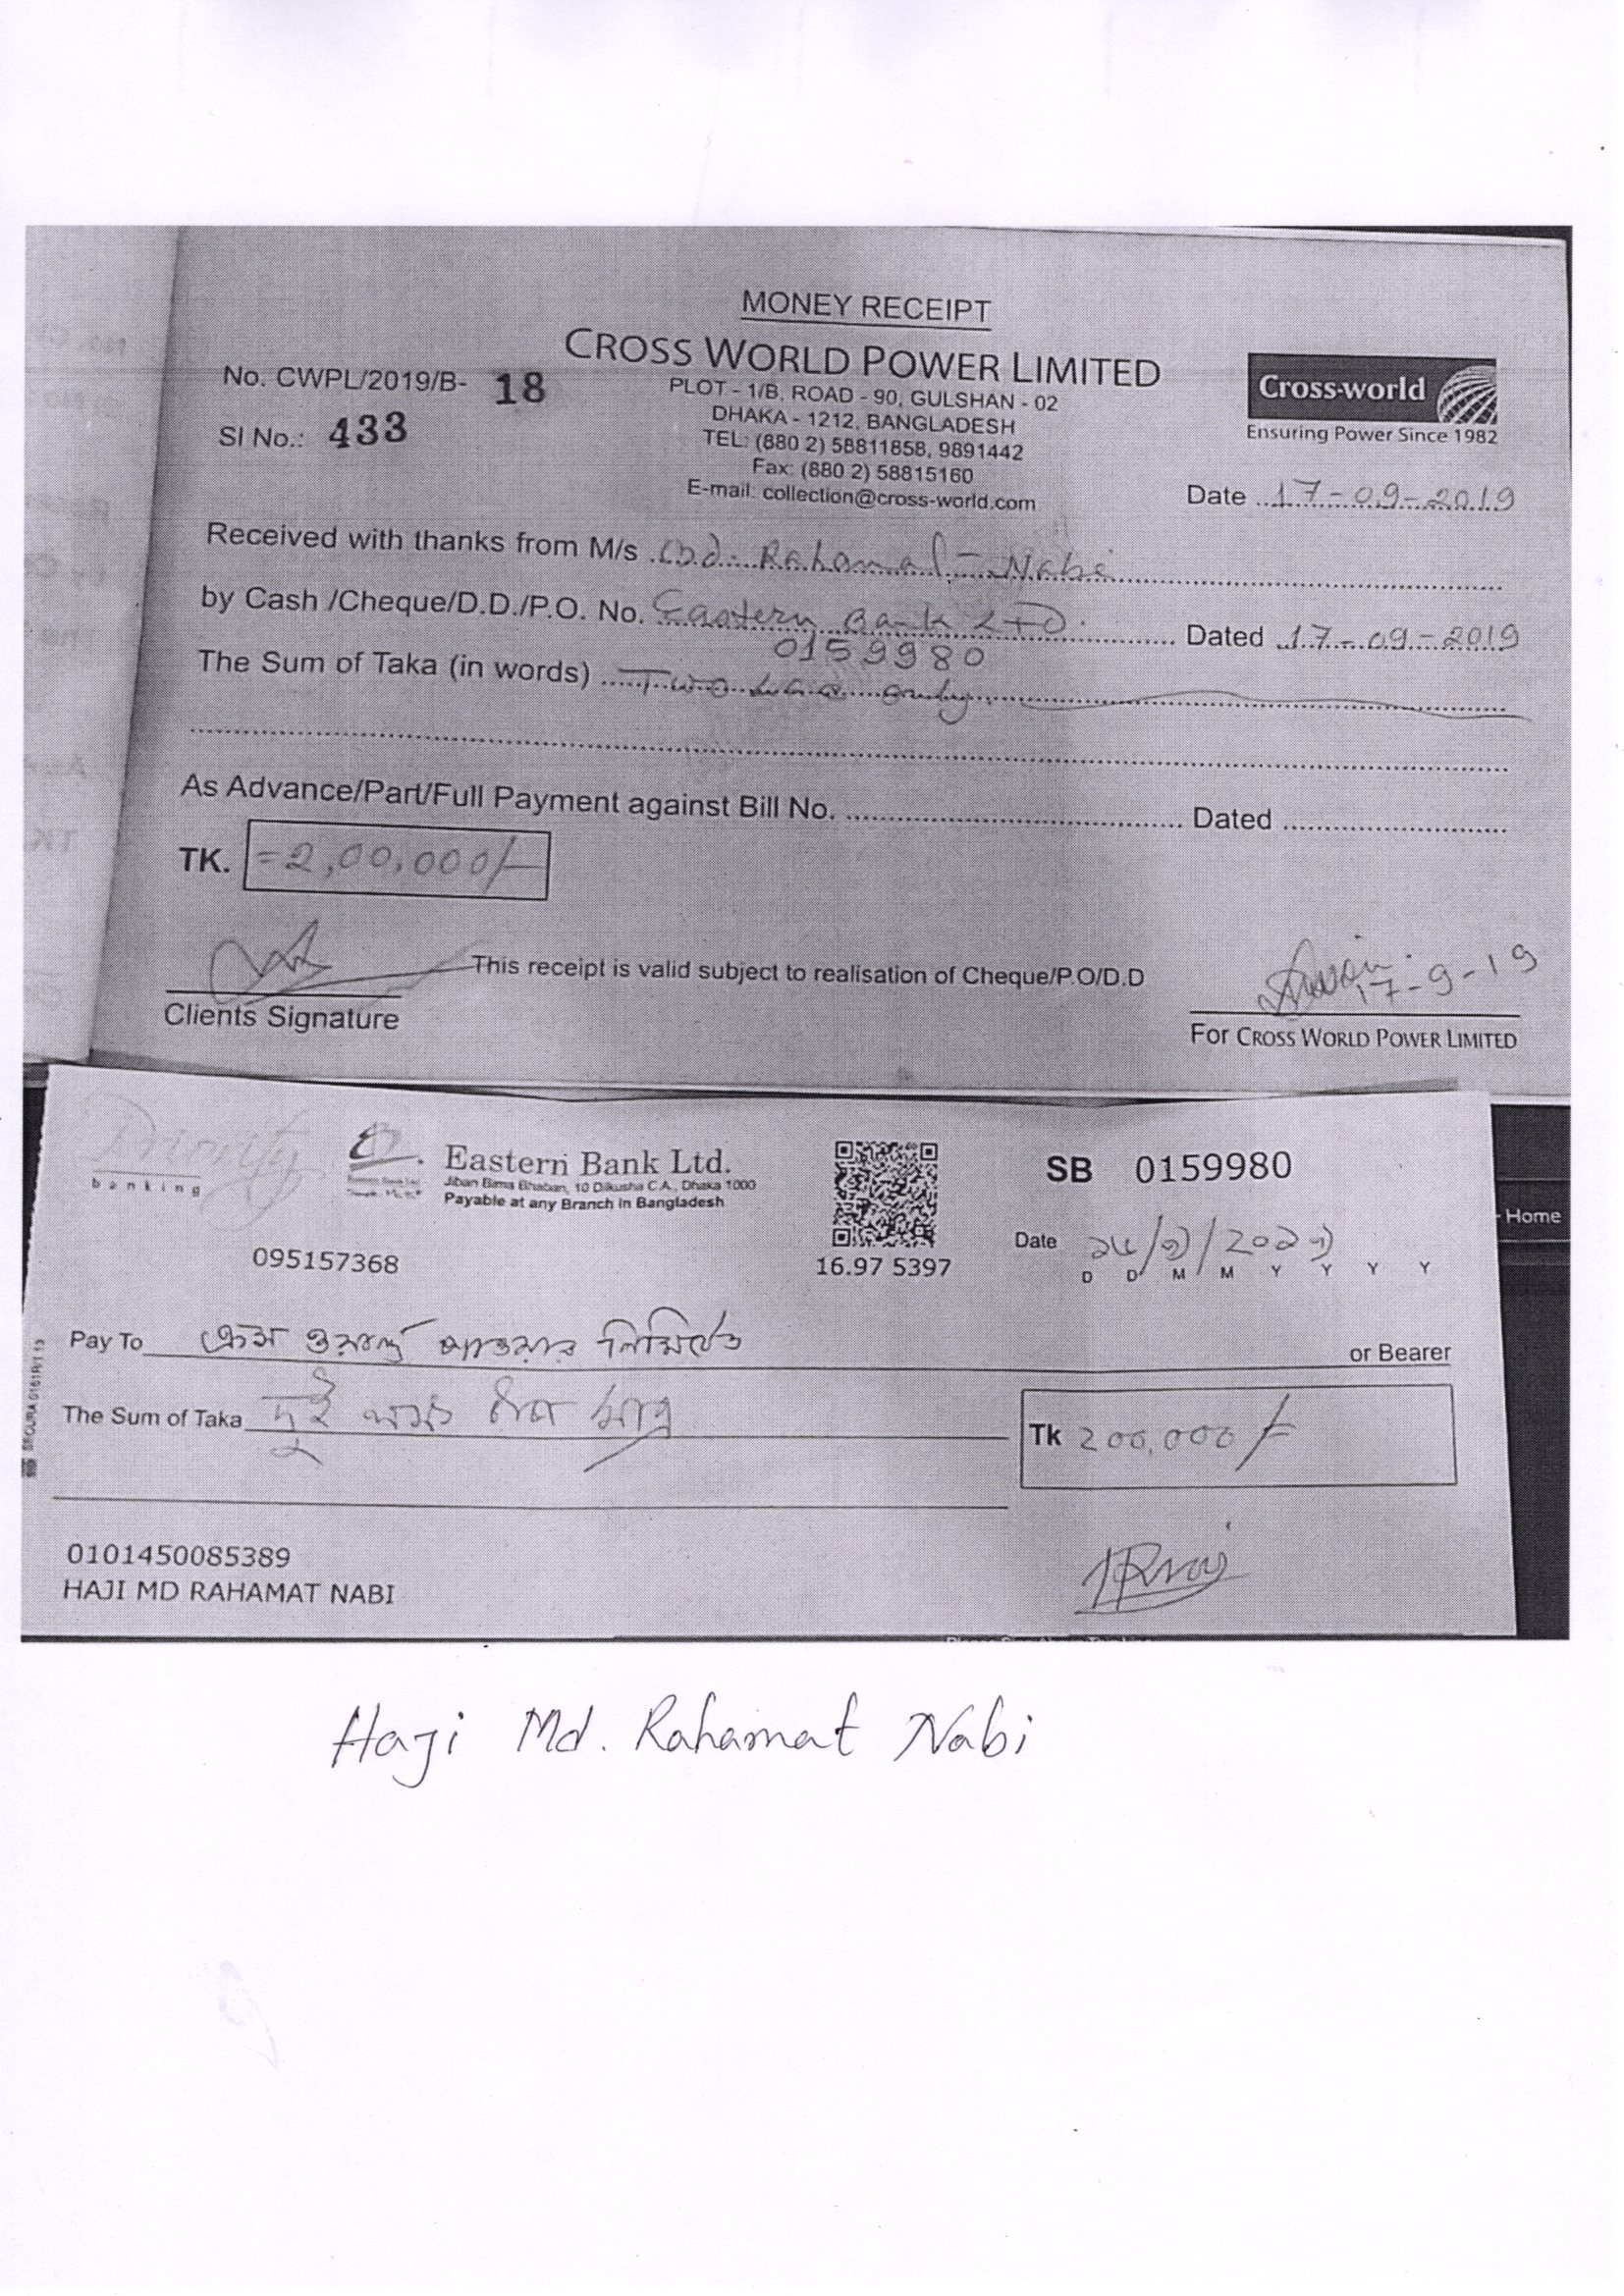 MONEY RECEIPT
CROSS WORLD POWER LIMITED
No. CWPL/2019/B- 18
PLOT - 1/B, ROAD - 90, GULSHAN - 02
DHAKA - 1212, BANGLADESH
SI No.: 433
TEL: (880 2) 58811858, 9891442
Fax: (880 2) 58815160
E-mail: collection@cross-world.com
Cross-world
Ensuring Power Since 1982
Date 17-09-2019
Received with thanks from M/s Rahamat Nabi
by Cash /Cheque/D.D./P.O. No. Eastern Bank LTD. Dated 17-09-2019
0159980
The Sum of Taka (in words) Two Lac only
As Advance/Part/Full Payment against Bill No. Dated
TK. =2,00,000/-
This receipt is valid subject to realisation of Cheque/P.O/D.D
17-9-19
Clients Signature
For CROSS WORLD POWER LIMITED
Priority
banking
Eastern Bank Ltd.
Jiban Bima Bhaban, 10 Dilkusha C.A., Dhaka 1000
Payable at any Branch in Bangladesh
SB 0159980
Home
095157368
16.97 5397
Date
D D M M Y Y Y Y
Pay To ক্রস ওয়ার্ল্ড পাওয়ার লিমিটেড
or Bearer
The Sum of Taka দুই লক্ষ টাকা মাত্র
Tk 200,000/-
0101450085389
HAJI MD RAHAMAT NABI
Haji Md. Rahamat Nabi